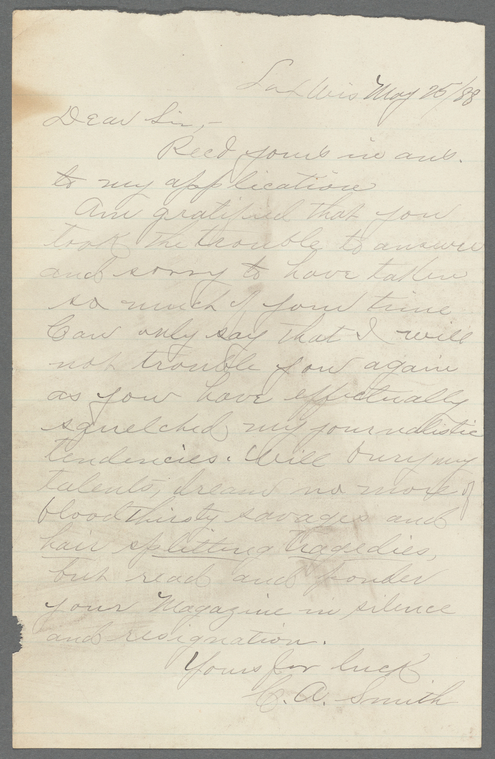 Wis May 25/88
Dear Sir,-
Rec'd yours in ans.
to my application
Am gratified that you
took the trouble to answer
and sorry to have taken
so much of your time
Can only say that I will
not trouble you again
as you have effectually
squelched my journalistic
tendencies. Will bury my
talents, dream no more of
bloodthirsty savages and
hair splitting tragedies,
but read and ponder
your Magazine in silence
and resignation.
Yours for luck
C. A. Smith